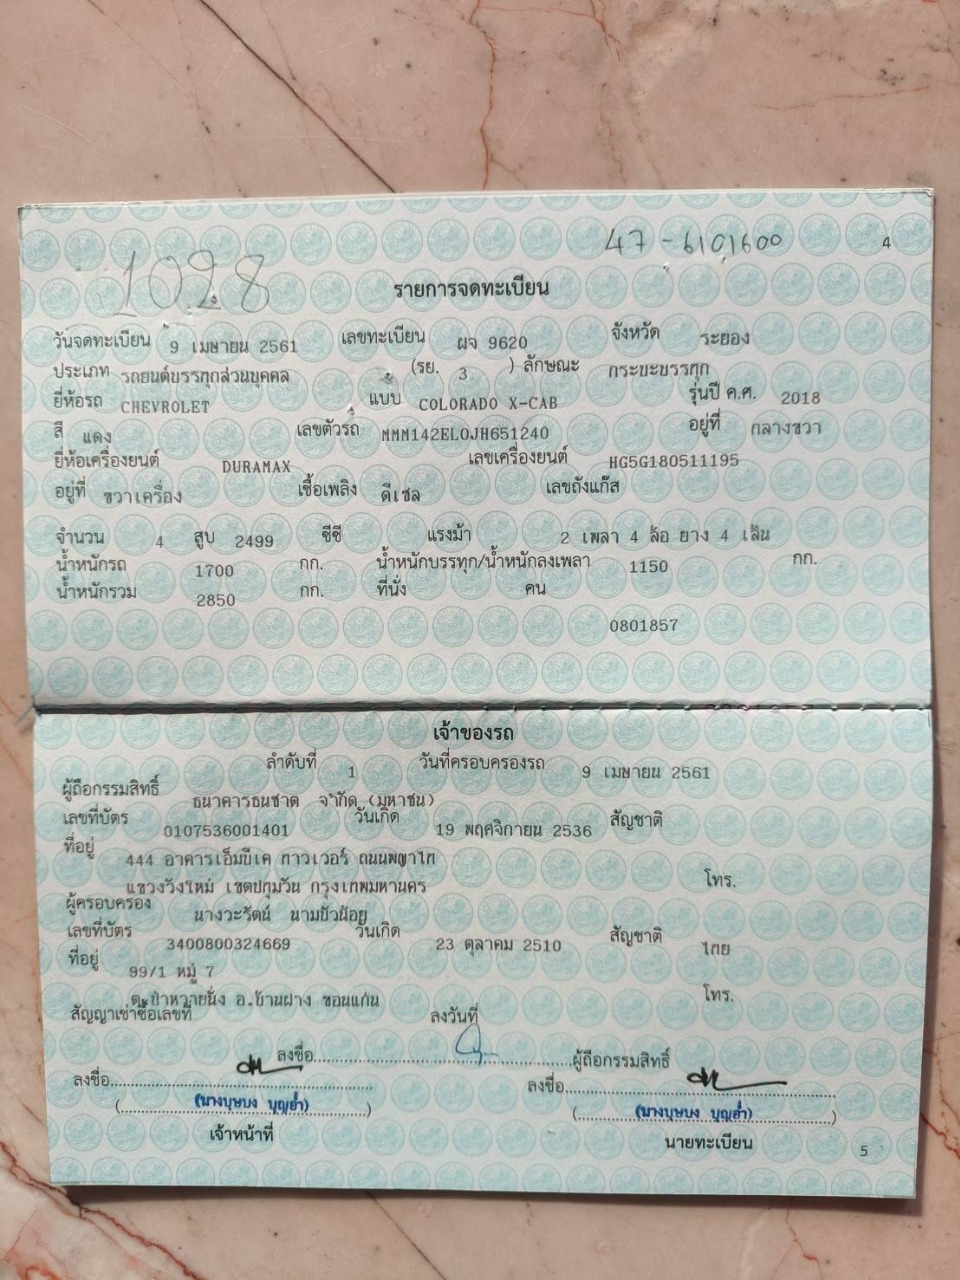 47-6101600 4
1028
รายการจดทะเบียน
วันจดทะเบียน 9 เมษายน 2561 เลขทะเบียน ผจ 9620 จังหวัด ระยอง
ประเภท รถยนต์บรรทุกส่วนบุคคล (รย. 3 ) ลักษณะ กระบะบรรทุก
ยี่ห้อรถ CHEVROLET แบบ COLORADO X-CAB รุ่นปี ค.ศ. 2018
สี แดง เลขตัวรถ MMM142ELOJH651240 อยู่ที่ กลางขวา
ยี่ห้อเครื่องยนต์ DURAMAX เลขเครื่องยนต์ HG5G180511195
อยู่ที่ ขวาเครื่อง เชื้อเพลิง ดีเซล เลขถังแก๊ส
จำนวน 4 สูบ 2499 ซีซี แรงม้า 2 เพลา 4 ล้อ ยาง 4 เส้น
น้ำหนักรถ 1700 กก. น้ำหนักบรรทุก/น้ำหนักลงเพลา 1150 กก.
น้ำหนักรวม 2850 กก. ที่นั่ง คน
0801857
เจ้าของรถ
ลำดับที่ 1 วันที่ครอบครองรถ 9 เมษายน 2561
ผู้ถือกรรมสิทธิ์ ธนาคารธนชาต จำกัด (มหาชน)
เลขที่บัตร 0107536001401 วันเกิด 19 พฤศจิกายน 2536 สัญชาติ
ที่อยู่ 444 อาคารเอ็มบีเค ทาวเวอร์ ถนนพญาไท
แขวงวังใหม่ เขตปทุมวัน กรุงเทพมหานคร โทร.
ผู้ครอบครอง นางวะรัตน์ นามบัวน้อย
เลขที่บัตร 3400800324669 วันเกิด 23 ตุลาคม 2510 สัญชาติ ไทย
ที่อยู่ 99/1 หมู่ 7
ต.ป่าหวายนั่ง อ.บ้านฝาง ขอนแก่น โทร.
สัญญาเช่าซื้อเลขที่ ลงวันที่
ลงชื่อ ผู้ถือกรรมสิทธิ์
ลงชื่อ ลงชื่อ
(นางบุษบง บุญฮ่ำ) (นางบุษบง บุญฮ่ำ)
เจ้าหน้าที่ นายทะเบียน
5